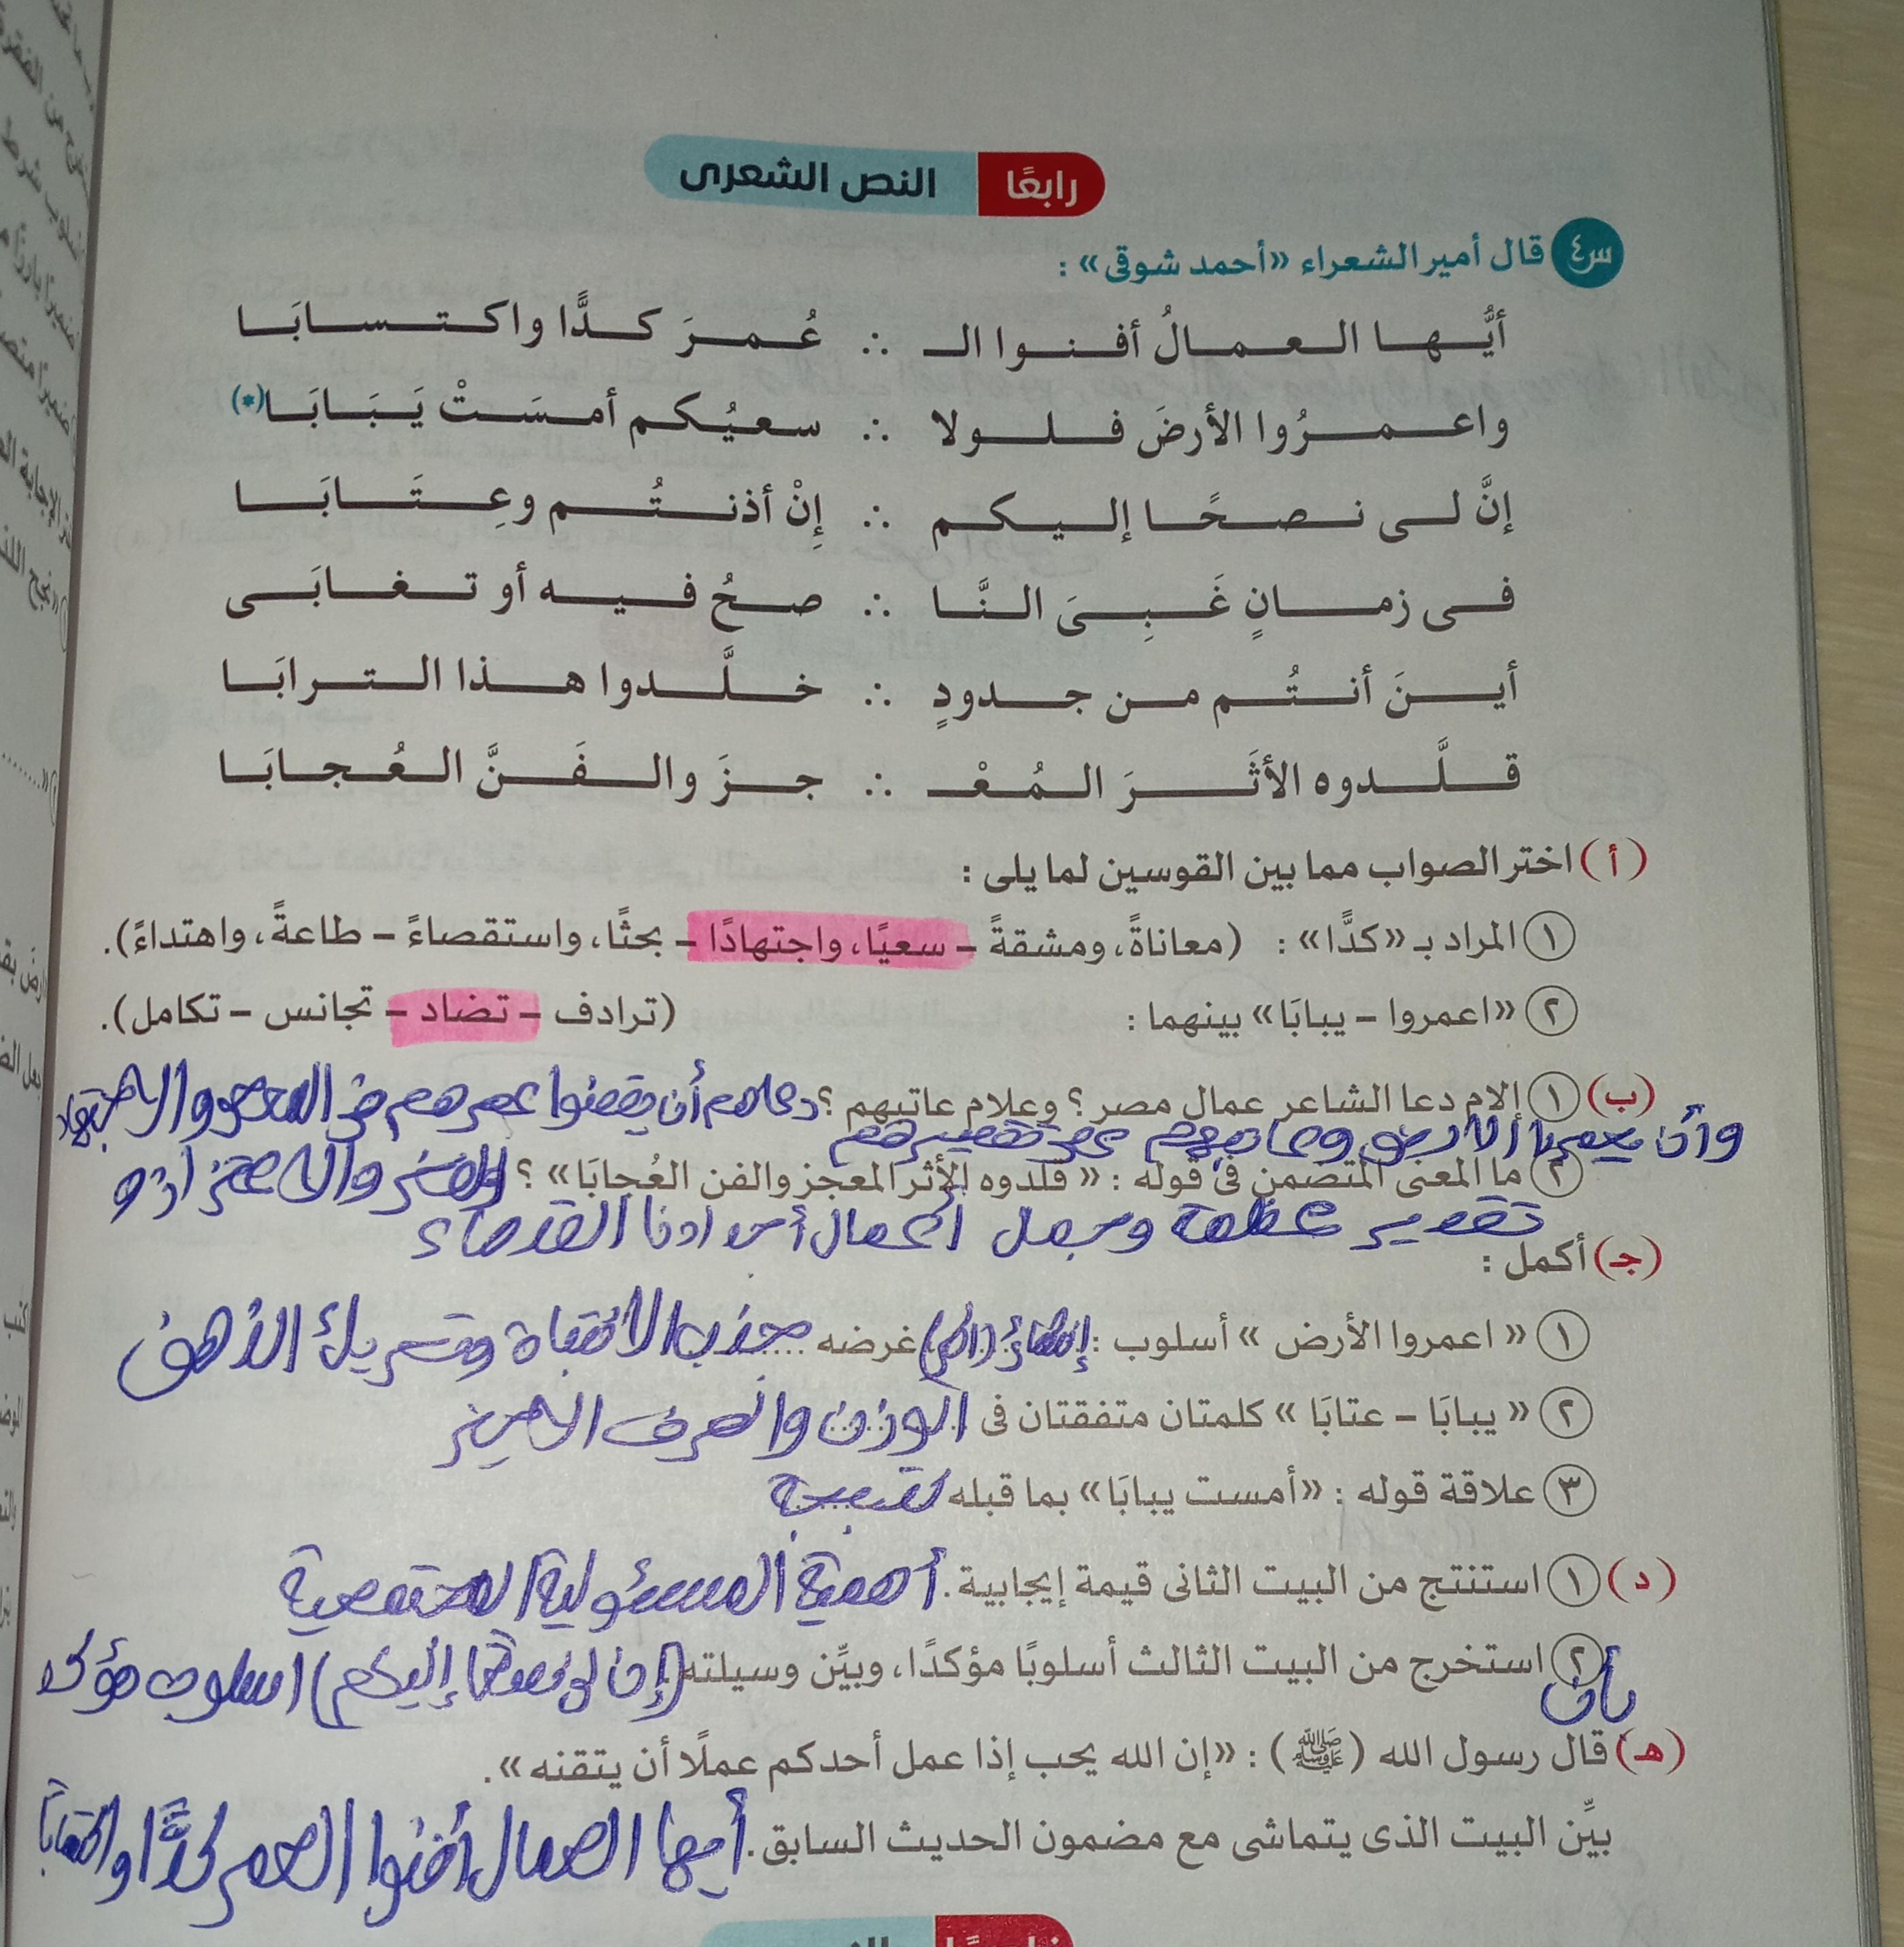 رابعًا النص الشعرى
س٤ قال أمير الشعراء «أحمد شوقى» :
أيُّها العمالُ أفنوا الـ ∴ عُمرَ كدًّا واكتسابَا
واعمرُوا الأرضَ فلولا ∴ سعيُكم أمسَتْ يَبَابَا(*)
إنَّ لى نصحًا إليكم ∴ إِنْ أذنتُم وعِتَابَا
فى زمانٍ غَبِىَ النَّا ∴ صحُ فيه أو تغابَى
أينَ أنتُم من جدودٍ ∴ خلَّدوا هذا الترابَا
قلَّدوه الأثَرَ المُعْـ ∴ جزَ والفَنَّ العُجابَا
(أ) اختر الصواب مما بين القوسين لما يلى :
١ المراد بـ «كدًّا» : (معاناةً، ومشقةً – سعيًا، واجتهادًا – بحثًا، واستقصاءً – طاعةً، واهتداءً).
٢ «اعمروا – يبابَا» بينهما : (ترادف – تضاد – تجانس – تكامل).
(ب) ١ إلام دعا الشاعر عمال مصر ؟ وعلام عاتبهم ؟ دعاهم أن يقضوا عمرهم فى والاجتهاد
وأن يعمروا الأرض وعاتبهم على تقصيرهم
٢ ما المعنى المتضمن فى قوله : «قلدوه الأثر المعجز والفن العُجابَا» ؟ الفخر والاعتزاز و
تقدير عظمة وجمل أعمال أجدادنا القدماء
(جـ) أكمل :
١ «اعمروا الأرض» أسلوب : إنشائى (أمر) غرضه جذب الانتباة وتحريك الذهن
٢ «يبابَا – عتابَا» كلمتان متفقتان فى الوزن والحرف الاخير
٣ علاقة قوله : «أمست يبابَا» بما قبله نتيجة
(د) ١ استنتج من البيت الثانى قيمة إيجابية. أهمية المسئولية المجتمعية
٢ استخرج من البيت الثالث أسلوبًا مؤكدًا، وبيِّن وسيلته. (إن لى نصحًا إليكم) اسلوب مؤكد
بأن
(هـ) قال رسول الله (ﷺ) : «إن الله يحب إذا عمل أحدكم عملًا أن يتقنه».
بيِّن البيت الذى يتماشى مع مضمون الحديث السابق. أيها العمال أفنوا العمر كدًّا واكتسابا